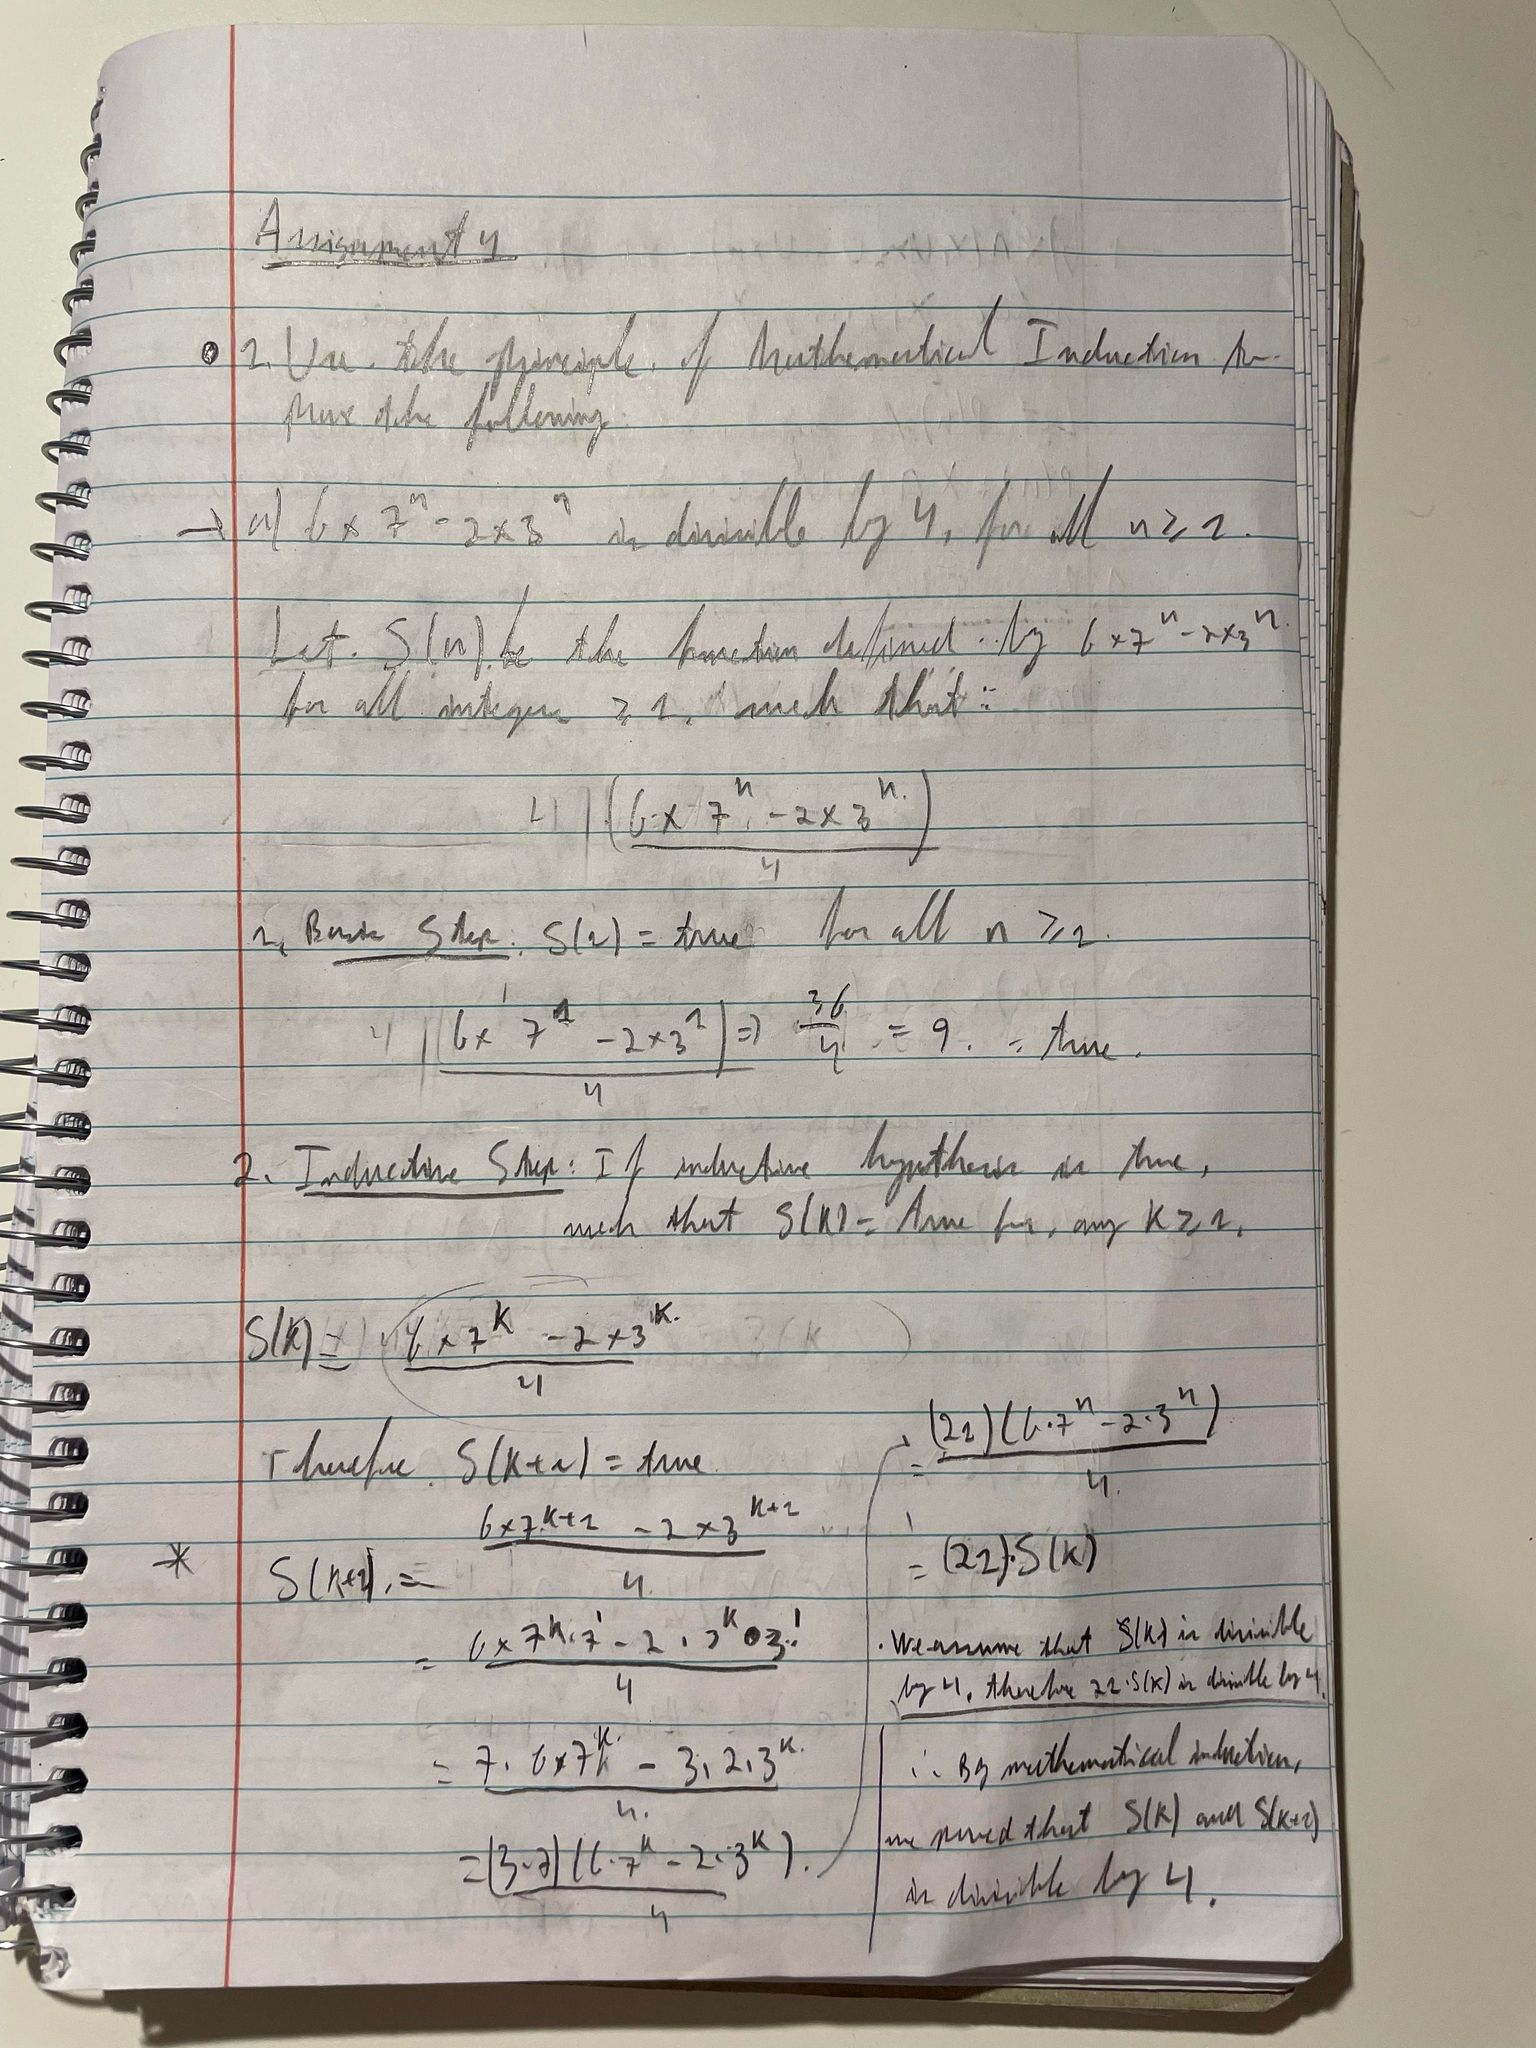 Assignment 4
1. Use the principle of Mathematical Induction to
prove the following
→ a) 6 × 7ⁿ - 2 × 3ⁿ is divisible by 4, for all n ≥ 1.
Let S(n) be the function defined by 6 × 7ⁿ - 2 × 3ⁿ
for all integers ≥ 1, such that:
4 | (6 × 7ⁿ - 2 × 3ⁿ) / 4
1. Basis Step: S(1) = true for all n ≥ 1.
4 | (6 × 7¹ - 2 × 3¹) / 4 ⇒ 36/4 = 9. = true.
2. Inductive Step: If inductive hypothesis is true,
such that S(k) = true for any k ≥ 1,
S(k) = (6 × 7ᵏ - 2 × 3ᵏ) / 4
Therefore S(k+1) = true
* S(k+1) = (6 × 7ᵏ⁺¹ - 2 × 3ᵏ⁺¹) / 4
= (6 × 7ᵏ · 7¹ - 2 · 3ᵏ · 3¹) / 4
= (7 · 6 × 7ᵏ - 3 · 2 · 3ᵏ) / 4
= (3·7)(6·7ᵏ - 2·3ᵏ) / 4
= (21)(6·7ⁿ - 2·3ⁿ) / 4
= (21)·S(k)
· We assume that S(k) is divisible
by 4, therefore 21·S(k) is divisible by 4.
∴ By mathematical induction,
we proved that S(k) and S(k+1)
is divisible by 4.